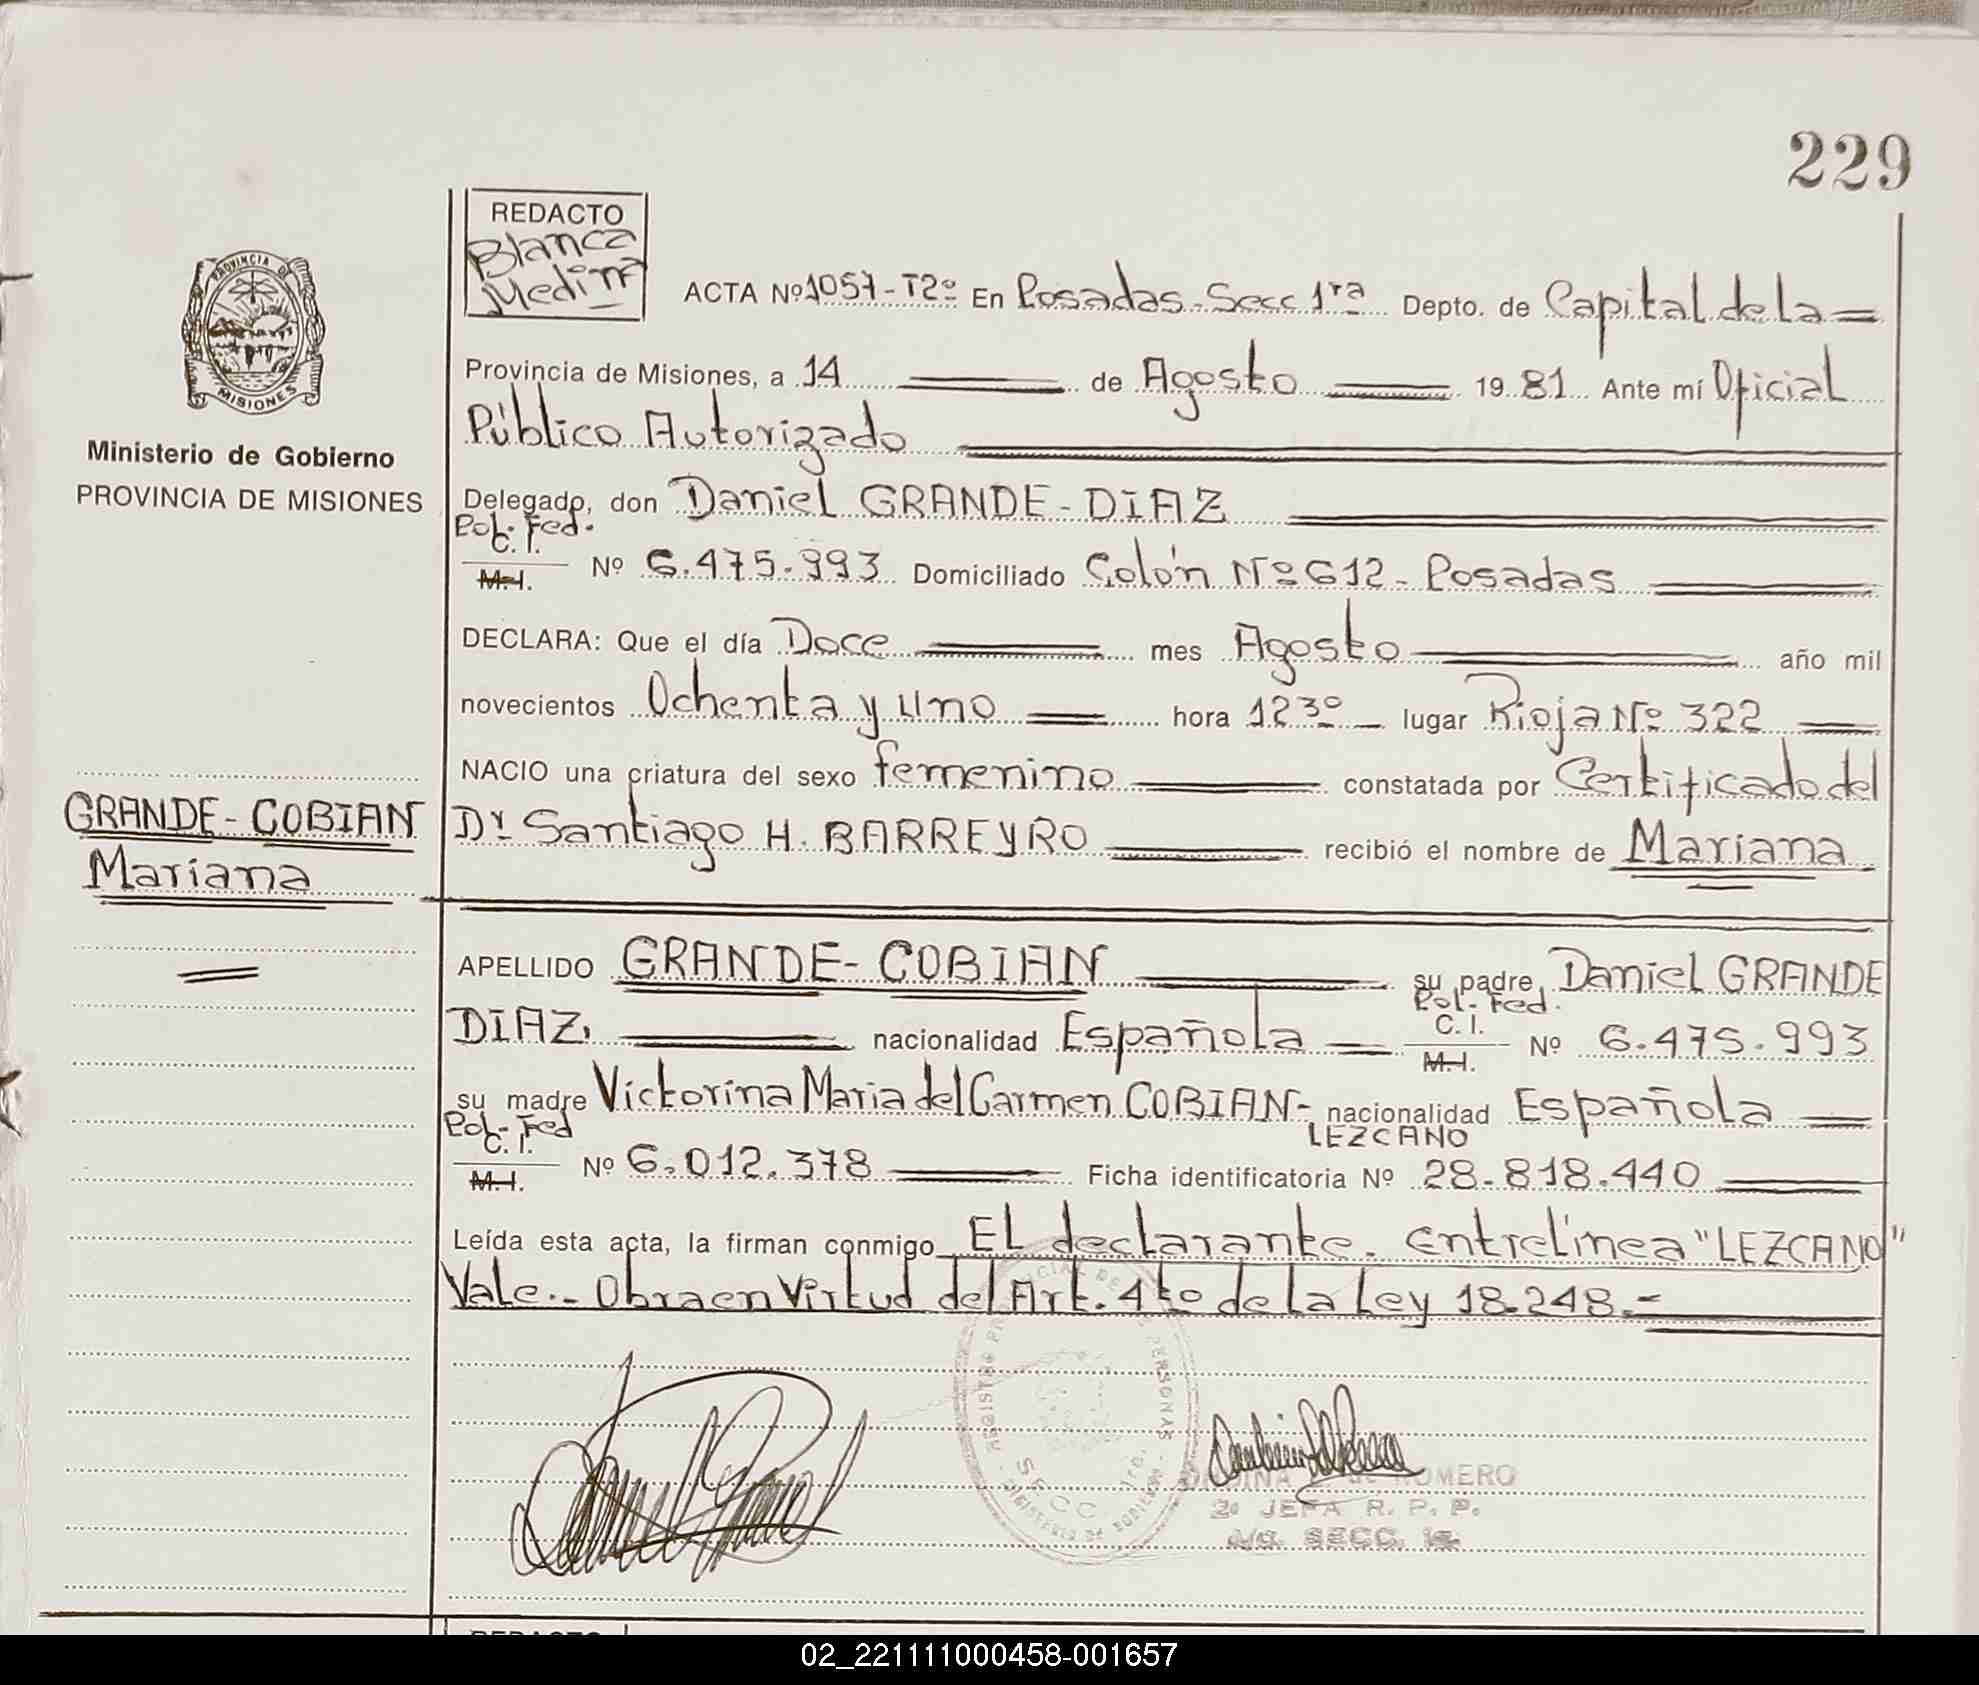 229
REDACTO
Blanca
Medina
PROVINCIA DE
MISIONES
Ministerio de Gobierno
PROVINCIA DE MISIONES
ACTA Nº 1057-T2º En Posadas-Secc 1ra Depto. de Capital de la
Provincia de Misiones, a 14 de Agosto 19 81 Ante mí Oficial
Público Autorizado
Delegado, don Daniel GRANDE-DIAZ
Pol. Fed.
C. I.
M. I. Nº 6.475.993 Domiciliado Colón Nº 612- Posadas
DECLARA: Que el día Doce mes Agosto año mil
novecientos Ochenta y uno hora 12 30 lugar Rioja Nº 322
NACIO una criatura del sexo femenino constatada por Certificado del
Dr Santiago H. BARREYRO recibió el nombre de Mariana
GRANDE-COBIAN
Mariana
APELLIDO GRANDE-COBIAN su padre, Daniel GRANDE
Pol. Fed.
C. I.
DIAZ. nacionalidad Española M. I. Nº 6.475.993
su madre Victorina Maria del Carmen COBIAN- nacionalidad Española
LEZCANO
Pol. Fed
C. I.
M. I. Nº 6.012.378 Ficha identificatoria Nº 28.818.440
Leída esta acta, la firman conmigo El declarante. Entrelínea "LEZCANO"
Vale.- Obra en Virtud del Art. 4to de la Ley 18.248.-
REGISTRO PROVINCIAL DE PERSONAS
SECC. 1ra.
MINISTERIO DE GOBIERNO
ROMERO
2º JEFA R. P. P.
SECC. 1a.
REDACTO
02_221111000458-001657